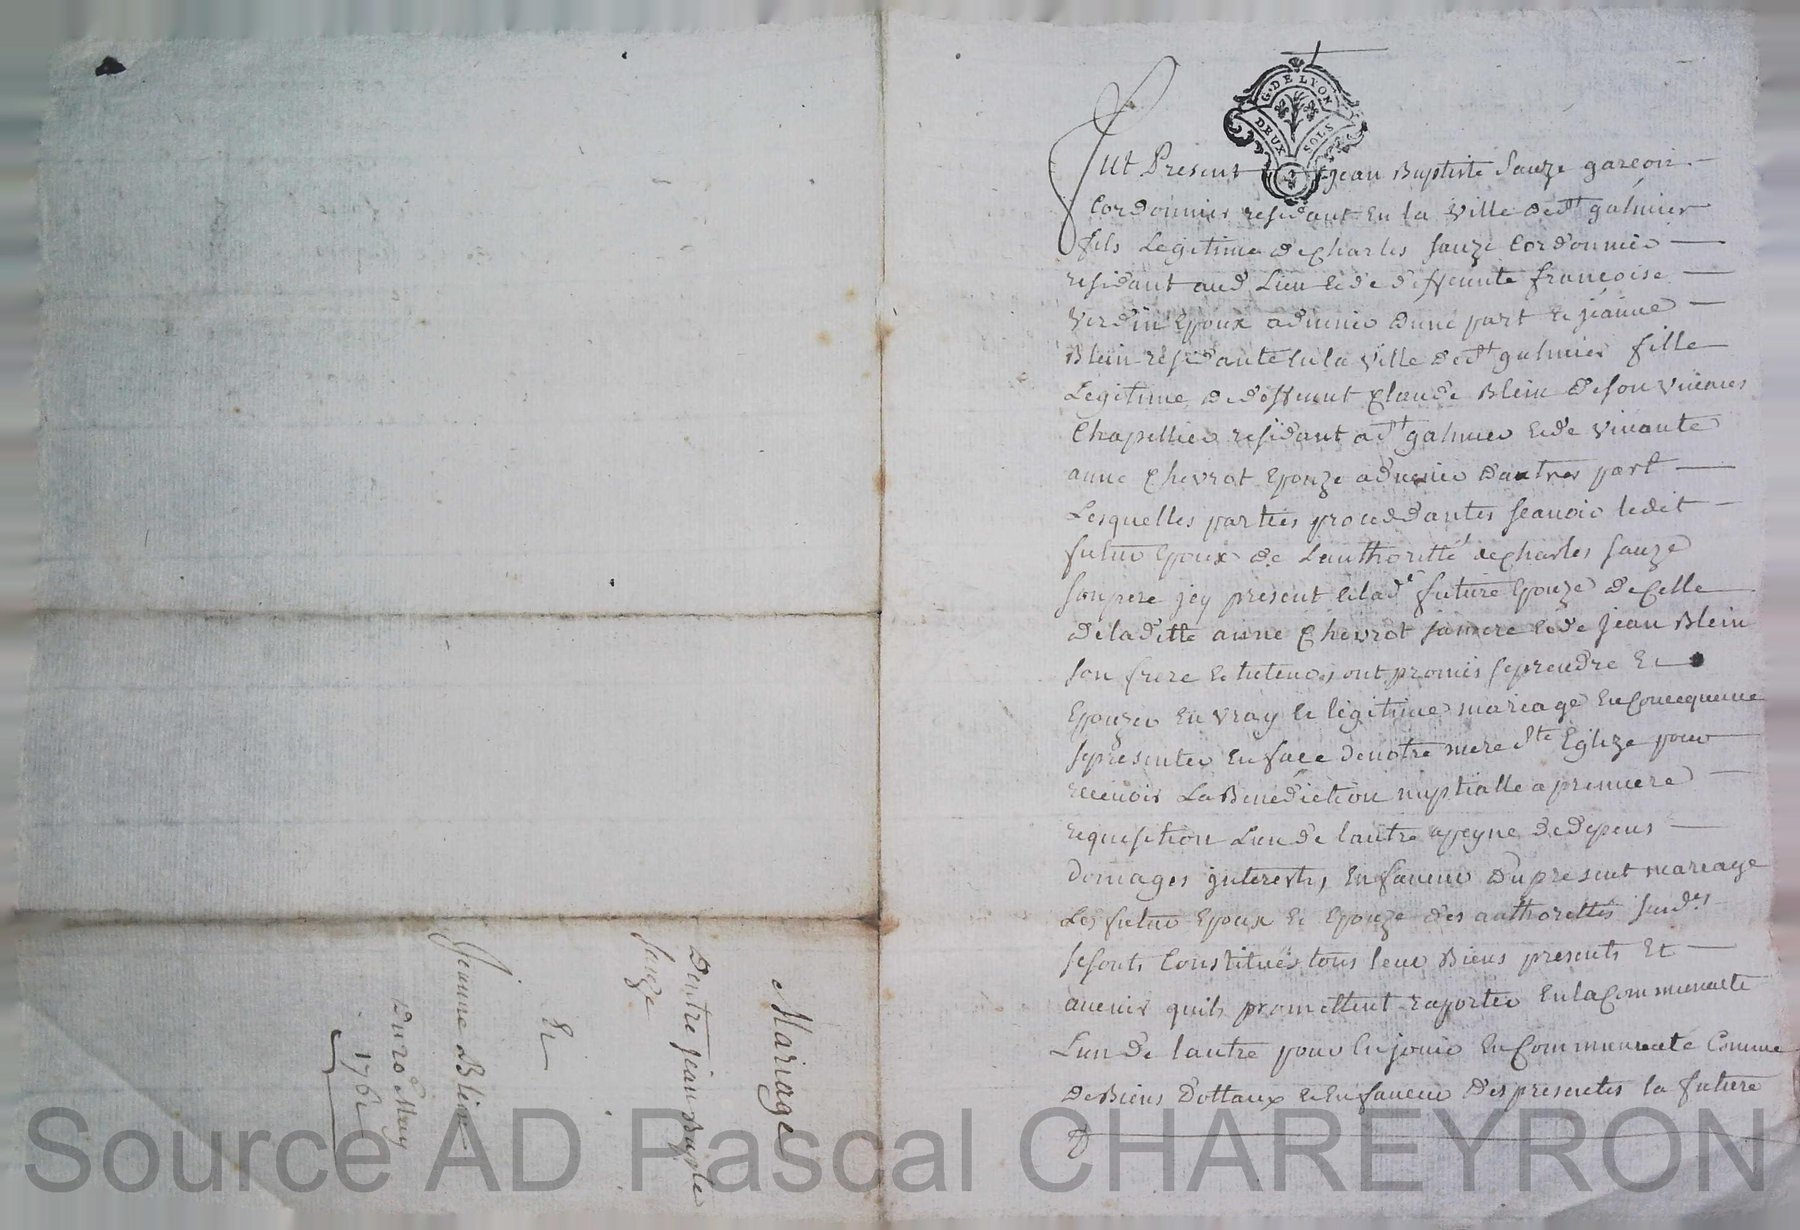 G. DE LYON
DEUX SOLS
Fut Present Jean Baptiste Sauze garcon
Cordonnier residant En la Ville de st galmier
fils Legitime de Charles Sauze Cordonnier
residant aud Lieu & de deffeunte francoise
Verdin Epoux advenir dune part & jeanne
Blein residante En la Ville de st galmier fille
Legitime de deffeunt Claude Blein de son vivant
Chapellier residant a st galmier & de vivante
anne Chevrot Epouze advenir dautres part
Lesquelles parties proceddantes scauoir ledit
futur Epoux de Lauthoritté de Charles Sauze
son pere jcy present & lade future Epouze de Celle
de laditte anne Chevrot sa mere & de Jean Blein
son frere & tuteur, ont promis se prendre Et
Epouzer En vray & legitime mariage En Concequence
se presenter En face de notre mere ste Eglize pour
recevoir La Benediction nuptialle a premiere
requisition Lun de lautre appeyne de depens
domages jnterests, En faveur Du present mariage
Les futur Epoux & Epouze des authorettés susdes
se sonts Constitués tous leur Biens presents Et
avenir quils promettent raporter En la Communauté
Lun de lautre pour En jouir En Communauté Comme
De Biens Dottaux & En faveur Des presentes la future
Mariage
Dentre jean baptiste
Sauze
Et
Jeanne Blein
Du 20e May
1762
Source AD Pascal CHAREYRON